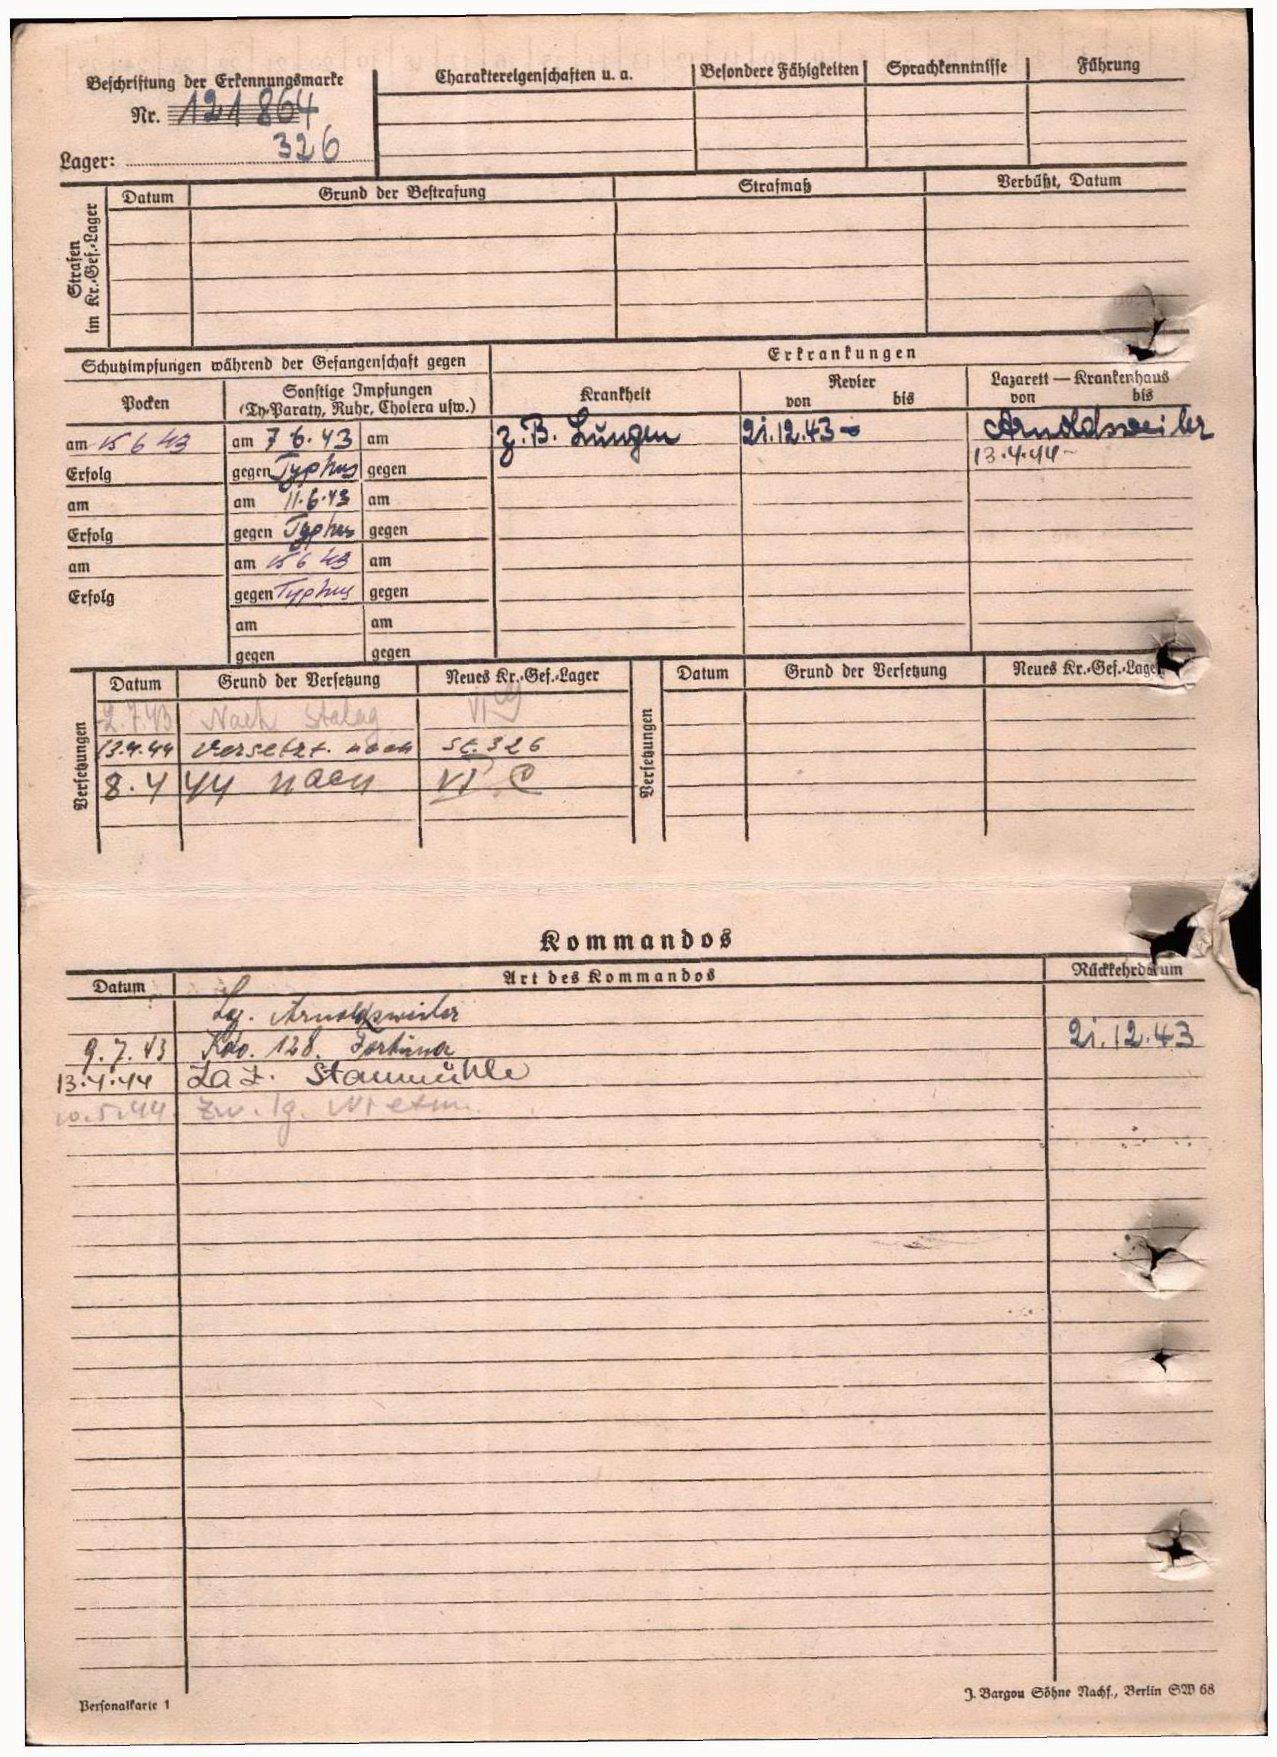 Beschriftung der Erkennungsmarke
Nr. 121864
Lager: 326
Charaktereigenschaften u. a. Besondere Fähigkeiten Sprachkenntnisse Führung
Strafen im Kr.-Gef.-Lager
Datum Grund der Bestrafung Strafmaß Verbüßt, Datum
Schutzimpfungen während der Gefangenschaft gegen Erkrankungen
Pocken Sonstige Impfungen (Ty-Paraty, Ruhr, Cholera usw.) Krankheit Revier von bis Lazarett — Krankenhaus von bis
am 15 6 43 am 7 6. 43 am z. B. Lungen 21.12.43 - Arnoldsweiler
Erfolg gegen Typhus gegen 13.4.44 -
am am 11.6.43 am
Erfolg gegen Typhus gegen
am am 15 6 43 am
Erfolg gegen Typhus gegen
am am
gegen gegen
Versetzungen
Datum Grund der Versetzung Neues Kr.-Gef.-Lager
2.7.43 Nach Stalag VI G
13.4.44 Versetzt. nach St. 326
8.4 44 nach VI C
Versetzungen
Datum Grund der Versetzung Neues Kr.-Gef.-Lage
Kommandos
Datum Art des Kommandos Rückkehrdatum
Lg. Arnoldsweiler
9.7.43 Kdo. 128. Fortuna 21.12.43
13.4.44 Laz. Staumühle
10.5.44 zw. lg.
Personalkarte 1
J. Bargou Söhne Nachf., Berlin SW 68